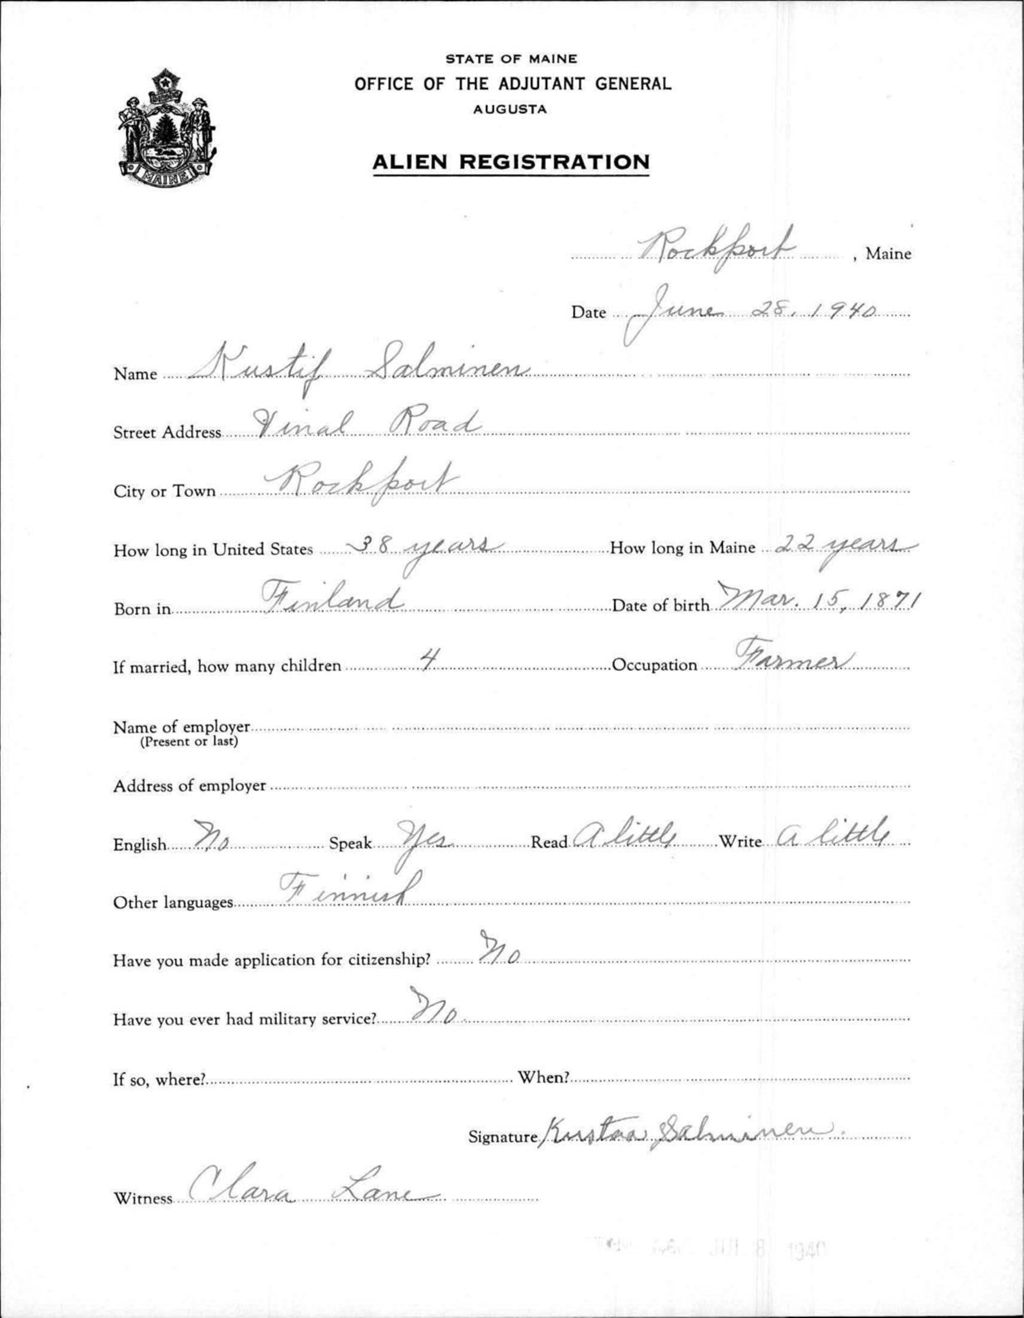 STATE OF MAINE
OFFICE OF THE ADJUTANT GENERAL
AUGUSTA
MAINE
ALIEN REGISTRATION
Rockport, Maine
Date June 28, 1940
Name Kustif Salminen
Street Address Vinal Road
City or Town Rockport
How long in United States 38 years How long in Maine 22 years
Born in Finland Date of birth Mar. 15, 1871
If married, how many children 4 Occupation Farmer
Name of employer
(Present or last)
Address of employer
English No Speak Yes Read A little Write A little
Other languages Finnish
Have you made application for citizenship? No
Have you ever had military service? No
If so, where? When?
Signature Kustaa Salminen.
Witness Clara Lane
JUL 8 1940